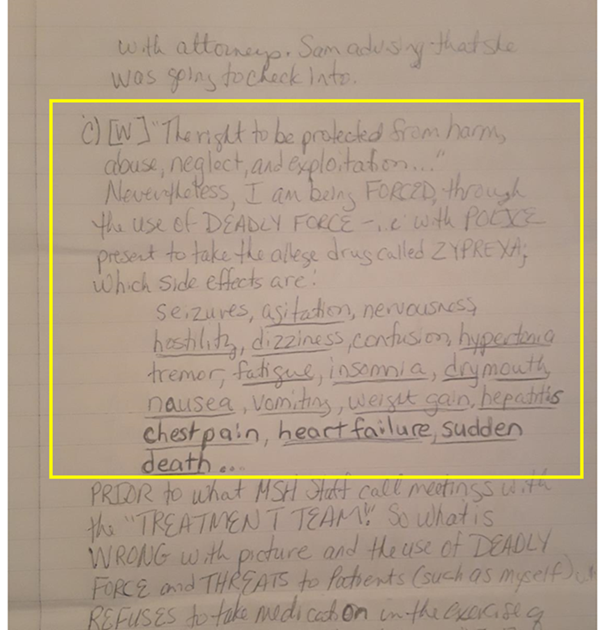 with attorneys. Sam advising that she
was going to check into.
c) [W] "The right to be protected from harm,
abuse, neglect, and exploitation..."
Nevertheless, I am being FORCED, through
the use of DEADLY FORCE - i.e. with POLICE
present to take the allege drug called ZYPREXA;
which side effects are:
seizures, agitation, nervousness,
hostility, dizziness, confusion, hypertonia
tremor, fatigue, insomnia, dry mouth,
nausea, vomiting, weight gain, hepatitis
chest pain, heart failure, sudden
death...
PRIOR to what MSH Staff call meetings with
the "TREATMENT TEAM!" So what is
WRONG with picture and the use of DEADLY
FORCE and THREATS to Patients (such as myself)
REFUSES to take medication in the exercise of